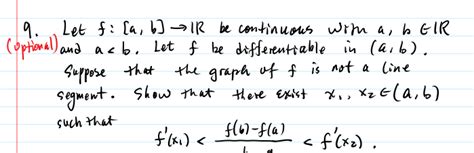 9. Let f: [a, b] → IR be continuous with a, b ∈ IR
(optional) and a < b. Let f be differentiable in (a, b).
Suppose that the graph of f is not a line
segment. Show that there exist x₁, x₂ ∈ (a, b)
such that
f'(x₁) < f(b)-f(a) / b - a < f'(x₂).